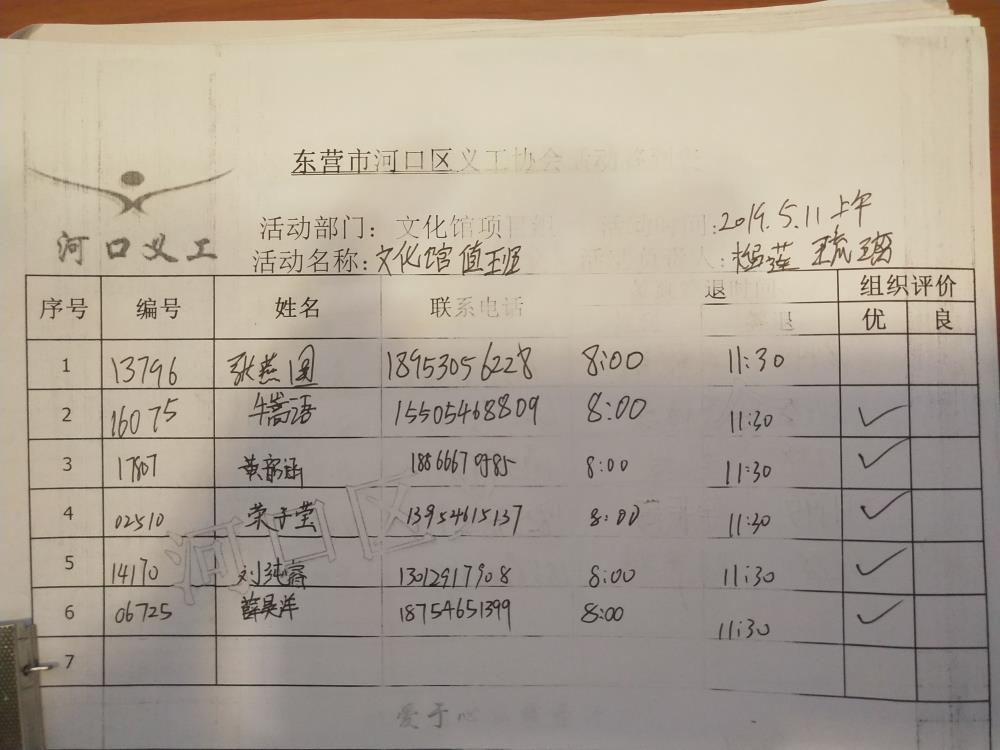 东营市河口区义工协会
河口义工
活动部门： 文化馆项目组 2019.5.11上午
活动名称: 文化馆值班 人: 杨莲 王琉璐
序号 编号 姓名 联系电话 退 组织评价
优 良
1 13796 张燕圆 18953056228 8:00 11:30
2 16075 牛嵩语 15505468809 8:00 11:30
3 17807 黄 涵 8:00 11:30
4 02510 荣子莹 13954615137 8:00 11:30
5 14170 刘纯睿 13012917908 8:00 11:30
6 06725 薛昊洋 18754651399 8:00 11:30
7
河口区
爱于心